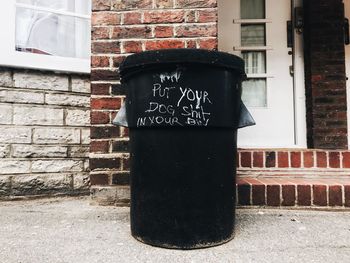 PUT YOUR
DOG SHIT
IN YOUR